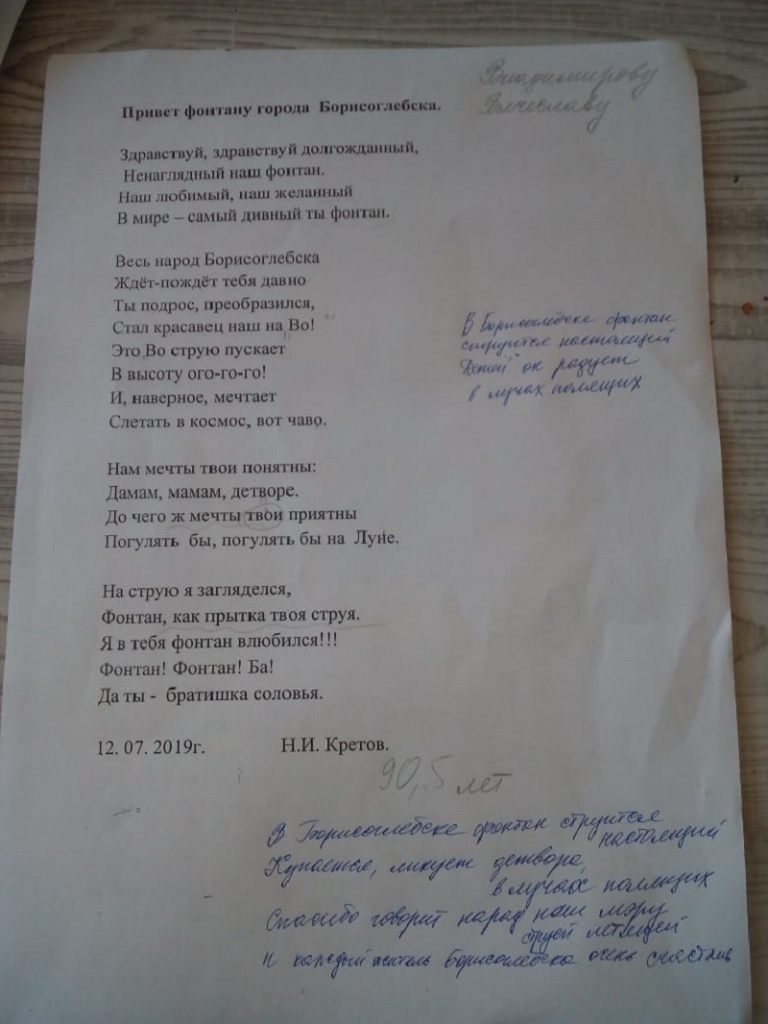 Владимирову
Вячеславу
Привет фонтану города Борисоглебска.
Здравствуй, здравствуй долгожданный,
Ненаглядный наш фонтан.
Наш любимый, наш желанный
В мире – самый дивный ты фонтан.
Весь народ Борисоглебска
Ждёт-пождёт тебя давно
Ты подрос, преобразился,
Стал красавец наш на Во!
Это Во струю пускает
В высоту ого-го-го!
И, наверное, мечтает
Слетать в космос, вот чаво.
В Борисоглебске фонтан
струится настоящий
Детей он радует
в лучах полящих
Нам мечты твои понятны:
Дамам, мамам, детворе.
До чего ж мечты твои приятны
Погулять бы, погулять бы на Луне.
На струю я загляделся,
Фонтан, как прытка твоя струя.
Я в тебя фонтан влюбился!!!
Фонтан! Фонтан! Ба!
Да ты - братишка соловья.
12. 07. 2019г. Н.И. Кретов.
90,5 лет
В Борисоглебске фонтан струится
настоящий
Купается, ликует детвора
в лучах полящих
Спасибо говорит народ наш мэру
струёй летящей
И каждый житель Борисоглебска очень счастлив